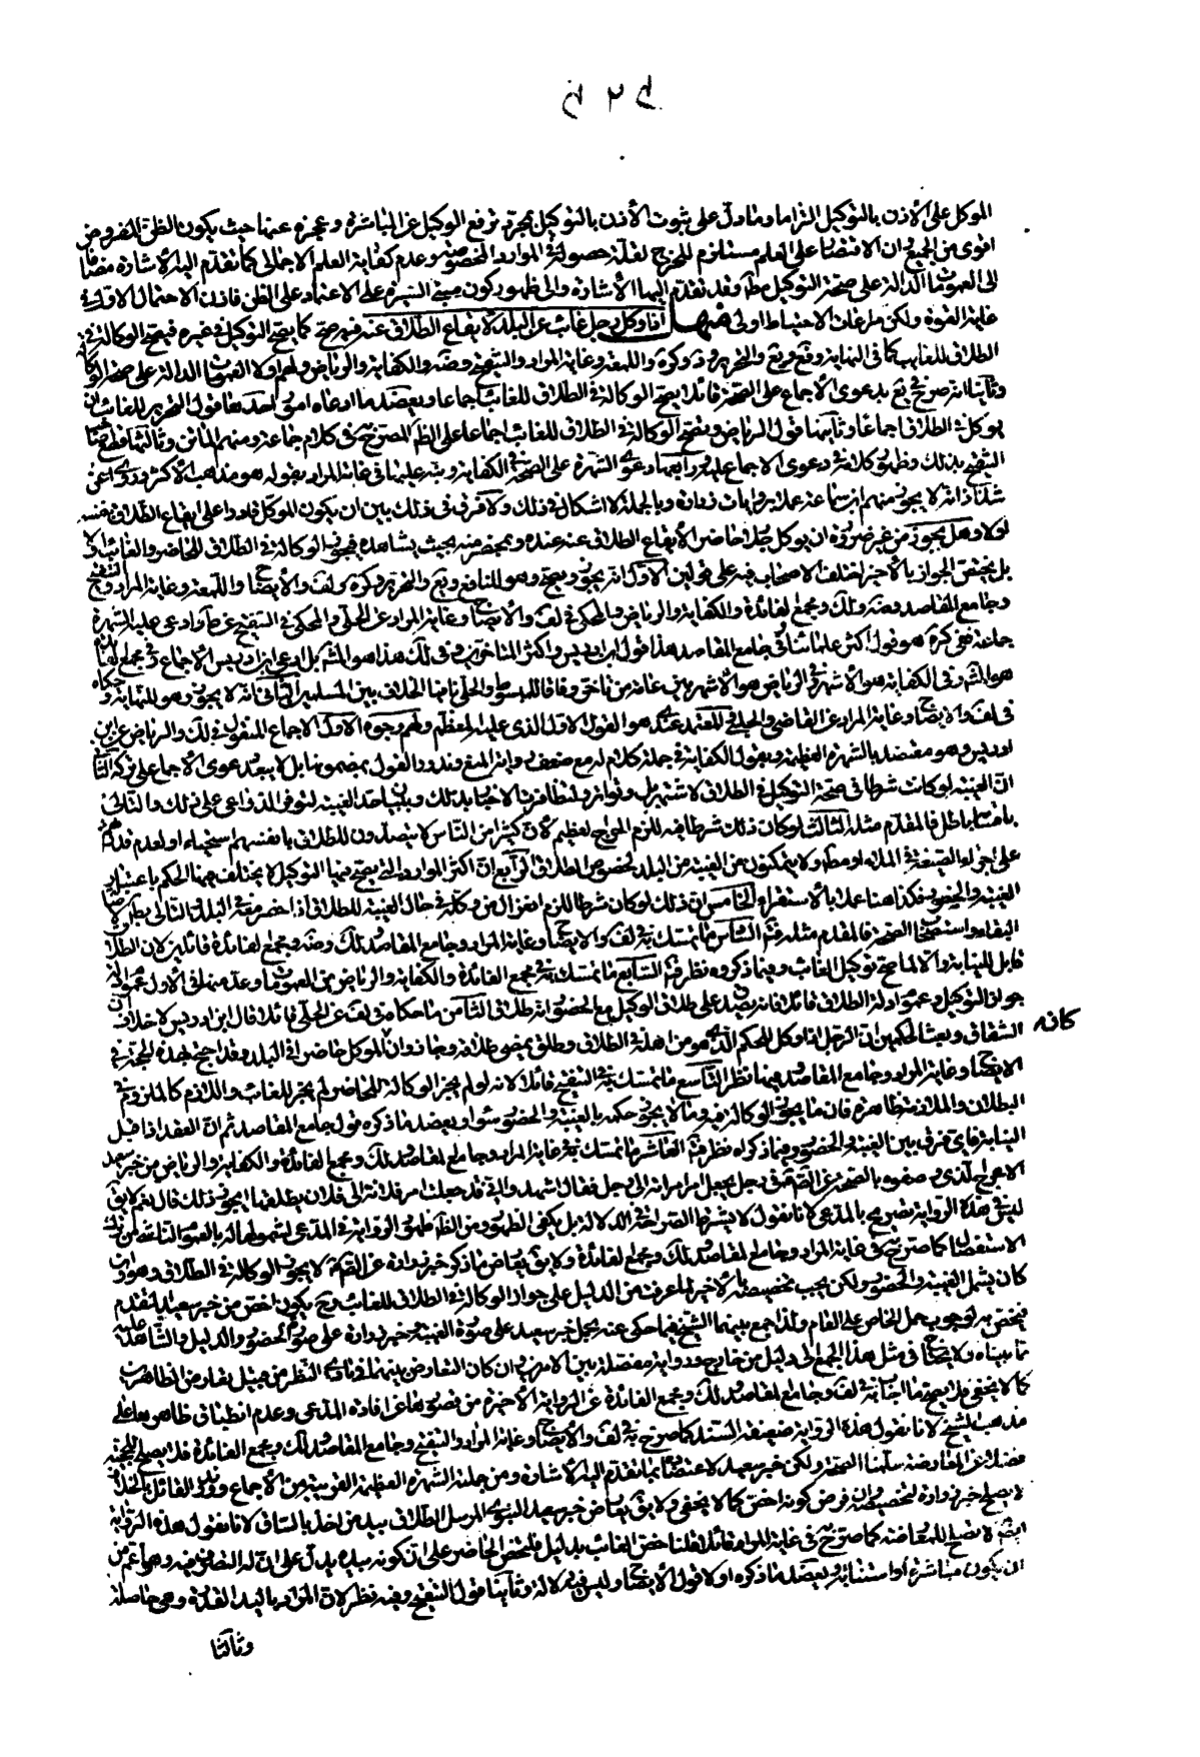 الموكل على الاذن بالتوكيل التزاما وما دل على ثبوت الاذن بالتوكيل بمجرد ترفع الوكيل عن المباشرة وعجزه عنها حيث يكون الظن المفروض
اقوى من الجميع ان الاقتصار على العلم مستلزم للحرج لقلة حصوله في الموارد المخصوصة وعدم كفاية العلم الاجمالى كما تقدم اليه الاشارة مضافا
الى العمومات الدالة على صحة التوكيل مط وقد تقدم اليها الاشارة والى ظهور كون مبنى السيرة على الاعتماد على الظن فاذن الاحتمال الاول في
غاية القوة ولكن مراعات الاحتياط اولى منها اذا وكل رجل غائب عن البلد لايقاع الطلاق عنه فهو صح كما يصح التوكيل في غيره فيصح الوكالة في
الطلاق للغايب كما في النهاية وفع ويع والتحرير وة وكرة واللمعة وغاية المراد والتنقيح وضة والكفاية والرياض ولهم اولا العمومات الدالة على صحة الوكالة
وثانيا انه صرح في يع بدعوى الاجماع على الصحة قائلا يصح الوكالة في الطلاق للغائب اجماعا ويعضد ما ادعاه امور احدها قول التحرير للغائب ان
يوكل في الطلاق اجماعا وثانيها قول الرياض ويصح الوكالة في الطلاق للغائب اجماعا على الظ المصرح به في كلام جماعة ومنهم الماتن وثالثها
الشيخ بذلك وظهور كلامه في دعوى الاجماع عليه ورابعها دعوى الشهرة على الصحة في الكفاية ونبه عليها في غاية المراد بقوله هو مذهب الاكثر وروى
شذاذ انه لا يجوز منهم ابن سماعة عملا بروايات زرارة وبالجملة لا اشكال في ذلك ولا فرق في ذلك بين ان يكون الموكل قادرا على ايقاع الطلاق بنفسه
اولا وهل يجوز من غير ضرورة ان يوكل رجلا حاضرا لايقاع الطلاق عنه عنده وبمحضر منه بحيث يشاهده فيجوز الوكالة في الطلاق للحاضر والغائب اولا
بل يختص الجواز بالاخير اختلف الاصحاب فيه على قولين الاول انه يجوز ويصح وهو للنافع ويع والتحرير وكرة ولف والايضاح واللمعة وغاية المراد والتنقيح
وجامع المقاصد وضة ولك ومجمع الفائدة والكفاية والرياض والمحكى في لف والايضاح وغاية المراد عن الحلى والمحكى في التنقيح عن ط وادعى عليه الشهرة
جماعة ففي كرة هو قول اكثر علمائنا وفي جامع المقاصد هذا قول ابن ادريس واكثر المتاخرين وفي لك هذا هو المشهور بل ادعى ابن ادريس الاجماع وفي مجمع الفائدة
هو المشهور وفي الكفاية هو الاشهر وفي الرياض هو الاشهر بين عامة من تاخر وفاقا للمبسوط والحلى نافيا الخلاف بين المسلمين الثاني انه لا يجوز وهو للنهاية وحكاه
في لف والايضاح وغاية المراد عن القاضى والحلبى والمعتمد عندى هو القول الاول الذى عليه المعظم ولهم وجوه الاول الاجماع المنقول في لك والرياض عن ابن
ادريس وهو معتضد بالشهرة العظيمة وبقول الكفاية في جملة كلام له مع ضعف وانه المنع وندور القول بمضمونها بل لا يبعد دعوى الاجماع على تركه الثاني
ان الغيبة لو كانت شرطا في صحة التوكيل في الطلاق لاشتهر بل وتواتر ولتظافرت الاخبار بذلك وببيان حد الغيبة لتوفر الدواعى على ذلك والتالى
باقسامه باطل فالمقدم مثله الثالث لو كان ذلك شرطا فيه للزم الحرج العظيم لان كثيرا من الناس لا يتصدون للطلاق بانفسهم استحياء او لعدم قدرتهم
على اجراء الصيغة في المدة او مط ولا يتمكنون من الغيبة من البلد لخصوص الطلاق الرابع ان اكثر الموارد التي يصح فيها التوكيل لا يختلف فيها الحكم باعتبار
الغيبة والحضور فكذا هنا عملا بالاستقراء الخامس ان ذلك لو كان شرطا للزم انعزال من وكله في حال الغيبة للطلاق اذا حضر معه في البلد والتالى بطل لاصالة
البقاء واستصحاب الصحة فالمقدم مثله فتم السادس ما تمسك به في لف والايضاح وغاية المراد وجامع المقاصد ولك وضة ومجمع الفائدة قائلين لان الطلاق
قابل للنيابة والا لما صح توكيل الغائب وفيما ذكروه نظر فتم السابع ما تمسك به في مجمع الفائدة والكفاية والرياض من العمومات وعد منها في الاول عموم ادلة
جواز التوكيل وعموم ادلة الطلاق قائلا فانه يصدق على طلاق الوكيل مع الحضور انه طلاق الثامن ما حكاه في لف عن الحلى قائلا قال ابن ادريس لا خلاف ان
كانه الشقاق وبعث الحكمين ان الرجل اذا وكل الحكم الذي هو من اهله في الطلاق وطلق بمضى طلاقه وجاز وان الموكل حاضر في البلد وقد احتج بهذه الحجة في
الايضاح وغاية المراد وجامع المقاصد وفيها نظر التاسع ما تمسك به في التنقيح قائلا لانه لو لم يجز الوكالة للحاضر لم يجز للغائب واللازم كالملزوم في
البطلان والملازمة ظاهرة فان ما يجوز الوكالة فيه وما لا يجوز حكمه بالغيبة والحضور سواء ويعضد ما ذكره قول جامع المقاصد ثم ان العقد اذا قبل
النيابة فاى فرق بين الغيبة والحضور وفيما ذكراه نظر فتم العاشر ما تمسك به في غاية المراد وجامع المقاصد ولك ومجمع الفائدة والكفاية والرياض من خبر سعيد
الاعرج الذى وصفوه بالصحة عن الصادق في رجل يجعل امر امراته الى رجل فقال اشهدوا اني قد جعلت امر فلانة الى فلان يطلقها ايجوز ذلك قال نعم لا يق
ليس في هذه الرواية تصريح بالمدعى لانا نقول لا يشترط الصراحة في الدلالة بل يكفى الظهور ومن الظ ظهور الرواية في المدعى لشمولها له بالعموم الناشى من ترك
الاستفصال كما صرح به في غاية المراد وجامع المقاصد ولك ومجمع الفائدة ولا يق يعارض ما ذكر خبر زرارة عن الصادق لا يجوز الوكالة في الطلاق وهو وان
كان يشمل الغيبة والحضور ولكن يجب تخصيصه بالاخير لما عرفت من الدليل على جواز الوكالة في الطلاق للغائب وح يكون اخص من خبر سعيد المتقدم
فيختص به لوجوب حمل الخاص على العام ولذا جمع بينهما الشيخ فيما حكى عنه بحمل خبر سعيد على صورة الغيبة وخبر زرارة على صورة الحضور والدليل والشاهد عليه
ما بيناه ولا يحتاج في مثل هذا الجمع الى دليل من خارج ورواية مفصلة بين الامرين وان كان التعارض بينهما في بادى النظر من قبيل تعارض الظاهرين
كما لا يخفى فلا يصح ما اجاب به في لف وجامع المقاصد ولك ومجمع الفائدة عن الرواية الاخيرة من قصورها عن افادة المدعى وعدم انطباق ظاهرها على
مذهب الشيخ لانا نقول هذه الرواية ضعيفة السند كما صرح به في لف والايضاح وغاية المراد والتنقيح وجامع المقاصد ولك ومجمع الفائدة فلا يصلح للحجية
فضلا عن المعارضة سلمنا الصحة ولكن خبر سعيد لاعتضاده بما تقدم اليه الاشارة ومن جملته الشهرة العظيمة القريبة من الاجماع وندور القائل بالخلاف
لا يصلح خبر زرارة لتخصيصه وان فرض كونه اخص كما لا يخفى ولا يق يعارض خبر سعيد النبوى المرسل الطلاق بيد من اخذ بالساق لانا نقول هذه الرواية
ايضا لا تصلح للمعارضة كما صرح به في غاية المراد قائلا قلنا خص الغائب بدليل فليخص الحاضر على ان كونه بيده يدل على ان له التصرف فيه وهو اعم من
ان يكون مباشرة او استنابة ويعضد ما ذكره اولا قول الايضاح وليس فيه دلالة وثانيا قول التنقيح وفيه نظر لان المراد باليد القدرة وهى حاصلة
وثالثا